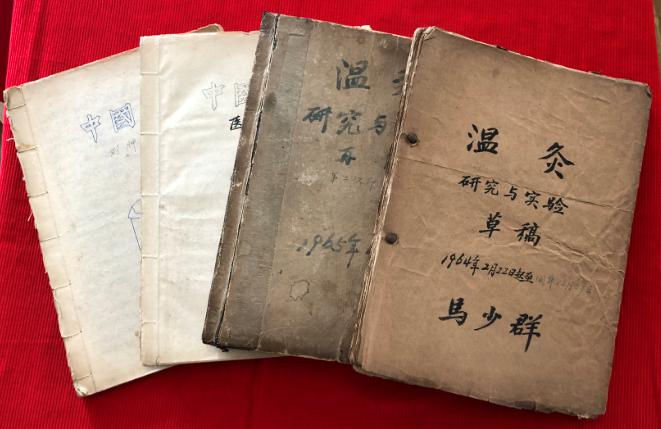 中國
中國
医
温灸
研究与
再
1965年
温灸
研究与实验
草稿
1964年2月22日起至
馬少群